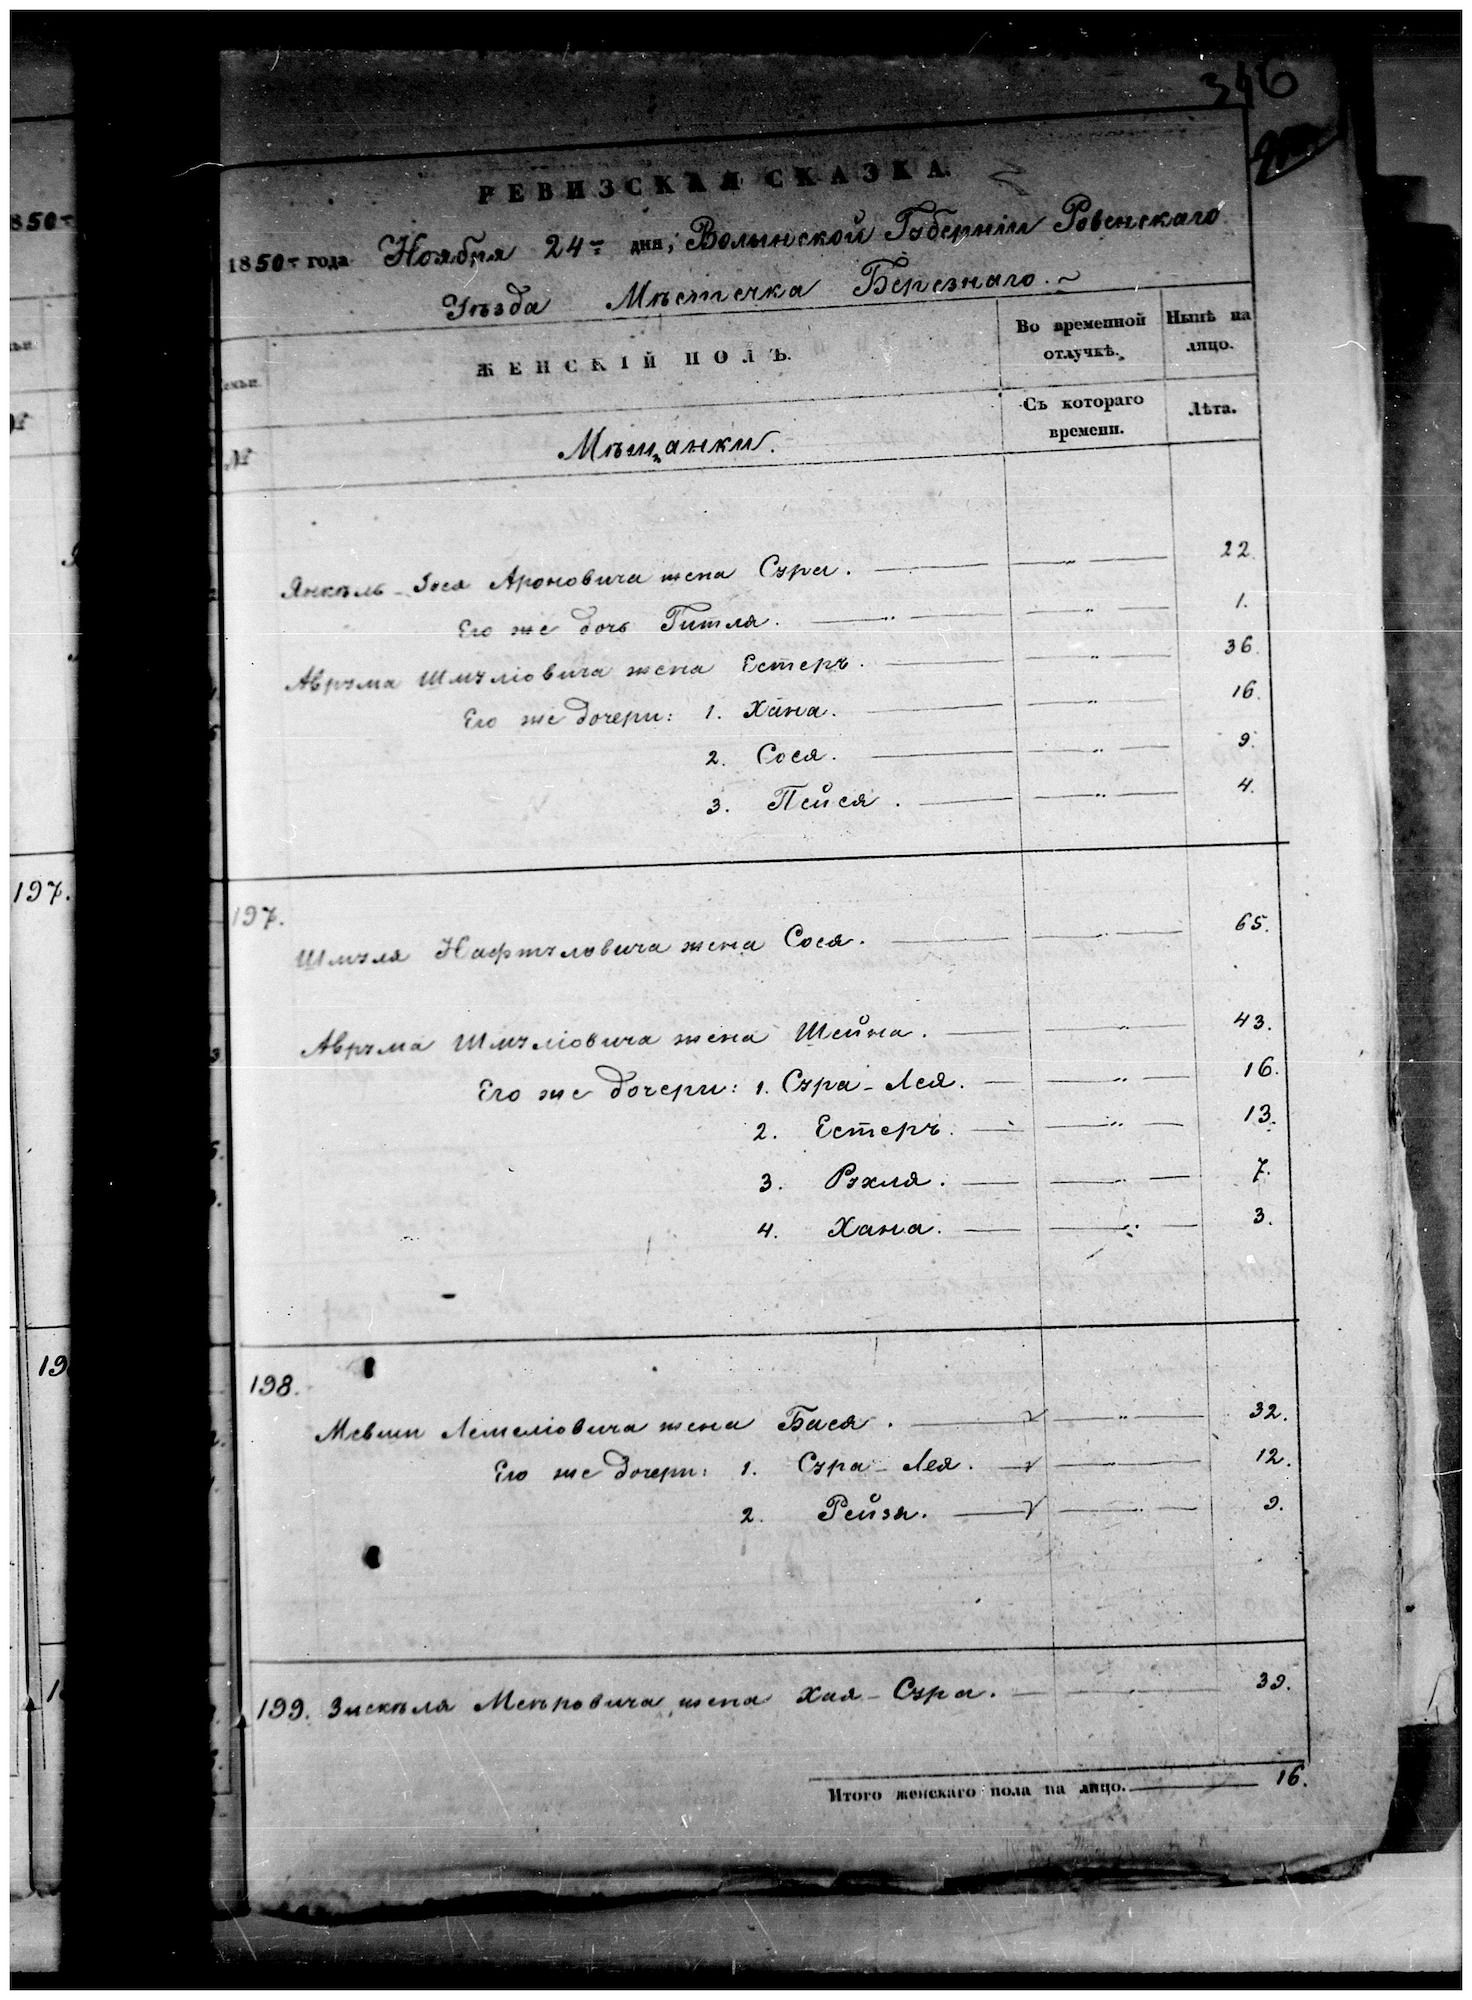 346
РЕВИЗСКАЯ СКАЗКА.
1850 года Ноября 24 дня, Волынской Губерніи Ровенскаго
Уѣзда Мѣстечка Березнаго.
ЖЕНСКІЙ ПОЛЪ.
Во временной отлучкѣ.
Нынѣ на лицо.
№
Мѣщанки.
Съ котораго времени.
Лѣта.
Янкель- Арoновича жена Сура. 22.
Его же дочь Гитля. 1.
Аврума Шмуліовича жена Естеръ. 36.
Его же дочери: 1. Хана. 16.
2. Сося. 9.
3. Пейся. 4.
197.
Шмуля Нафтуловича жена Сося. 65.
Аврума Шмуліовича жена Шейна. 43.
Его же дочери: 1. Сура-Лея. 16.
2. Естеръ. 13.
3. Рухля. 7.
4. Хана. 3.
198.
Мевши Лемеліовича жена Бася. 32.
Его же дочери: 1. Сура-Лея. 12.
2. Рейзя. 9.
199. Зискеля Меѣровича жена Хая-Сура. 39.
Итого женскаго пола на лицо. 16.
1850
197.
19